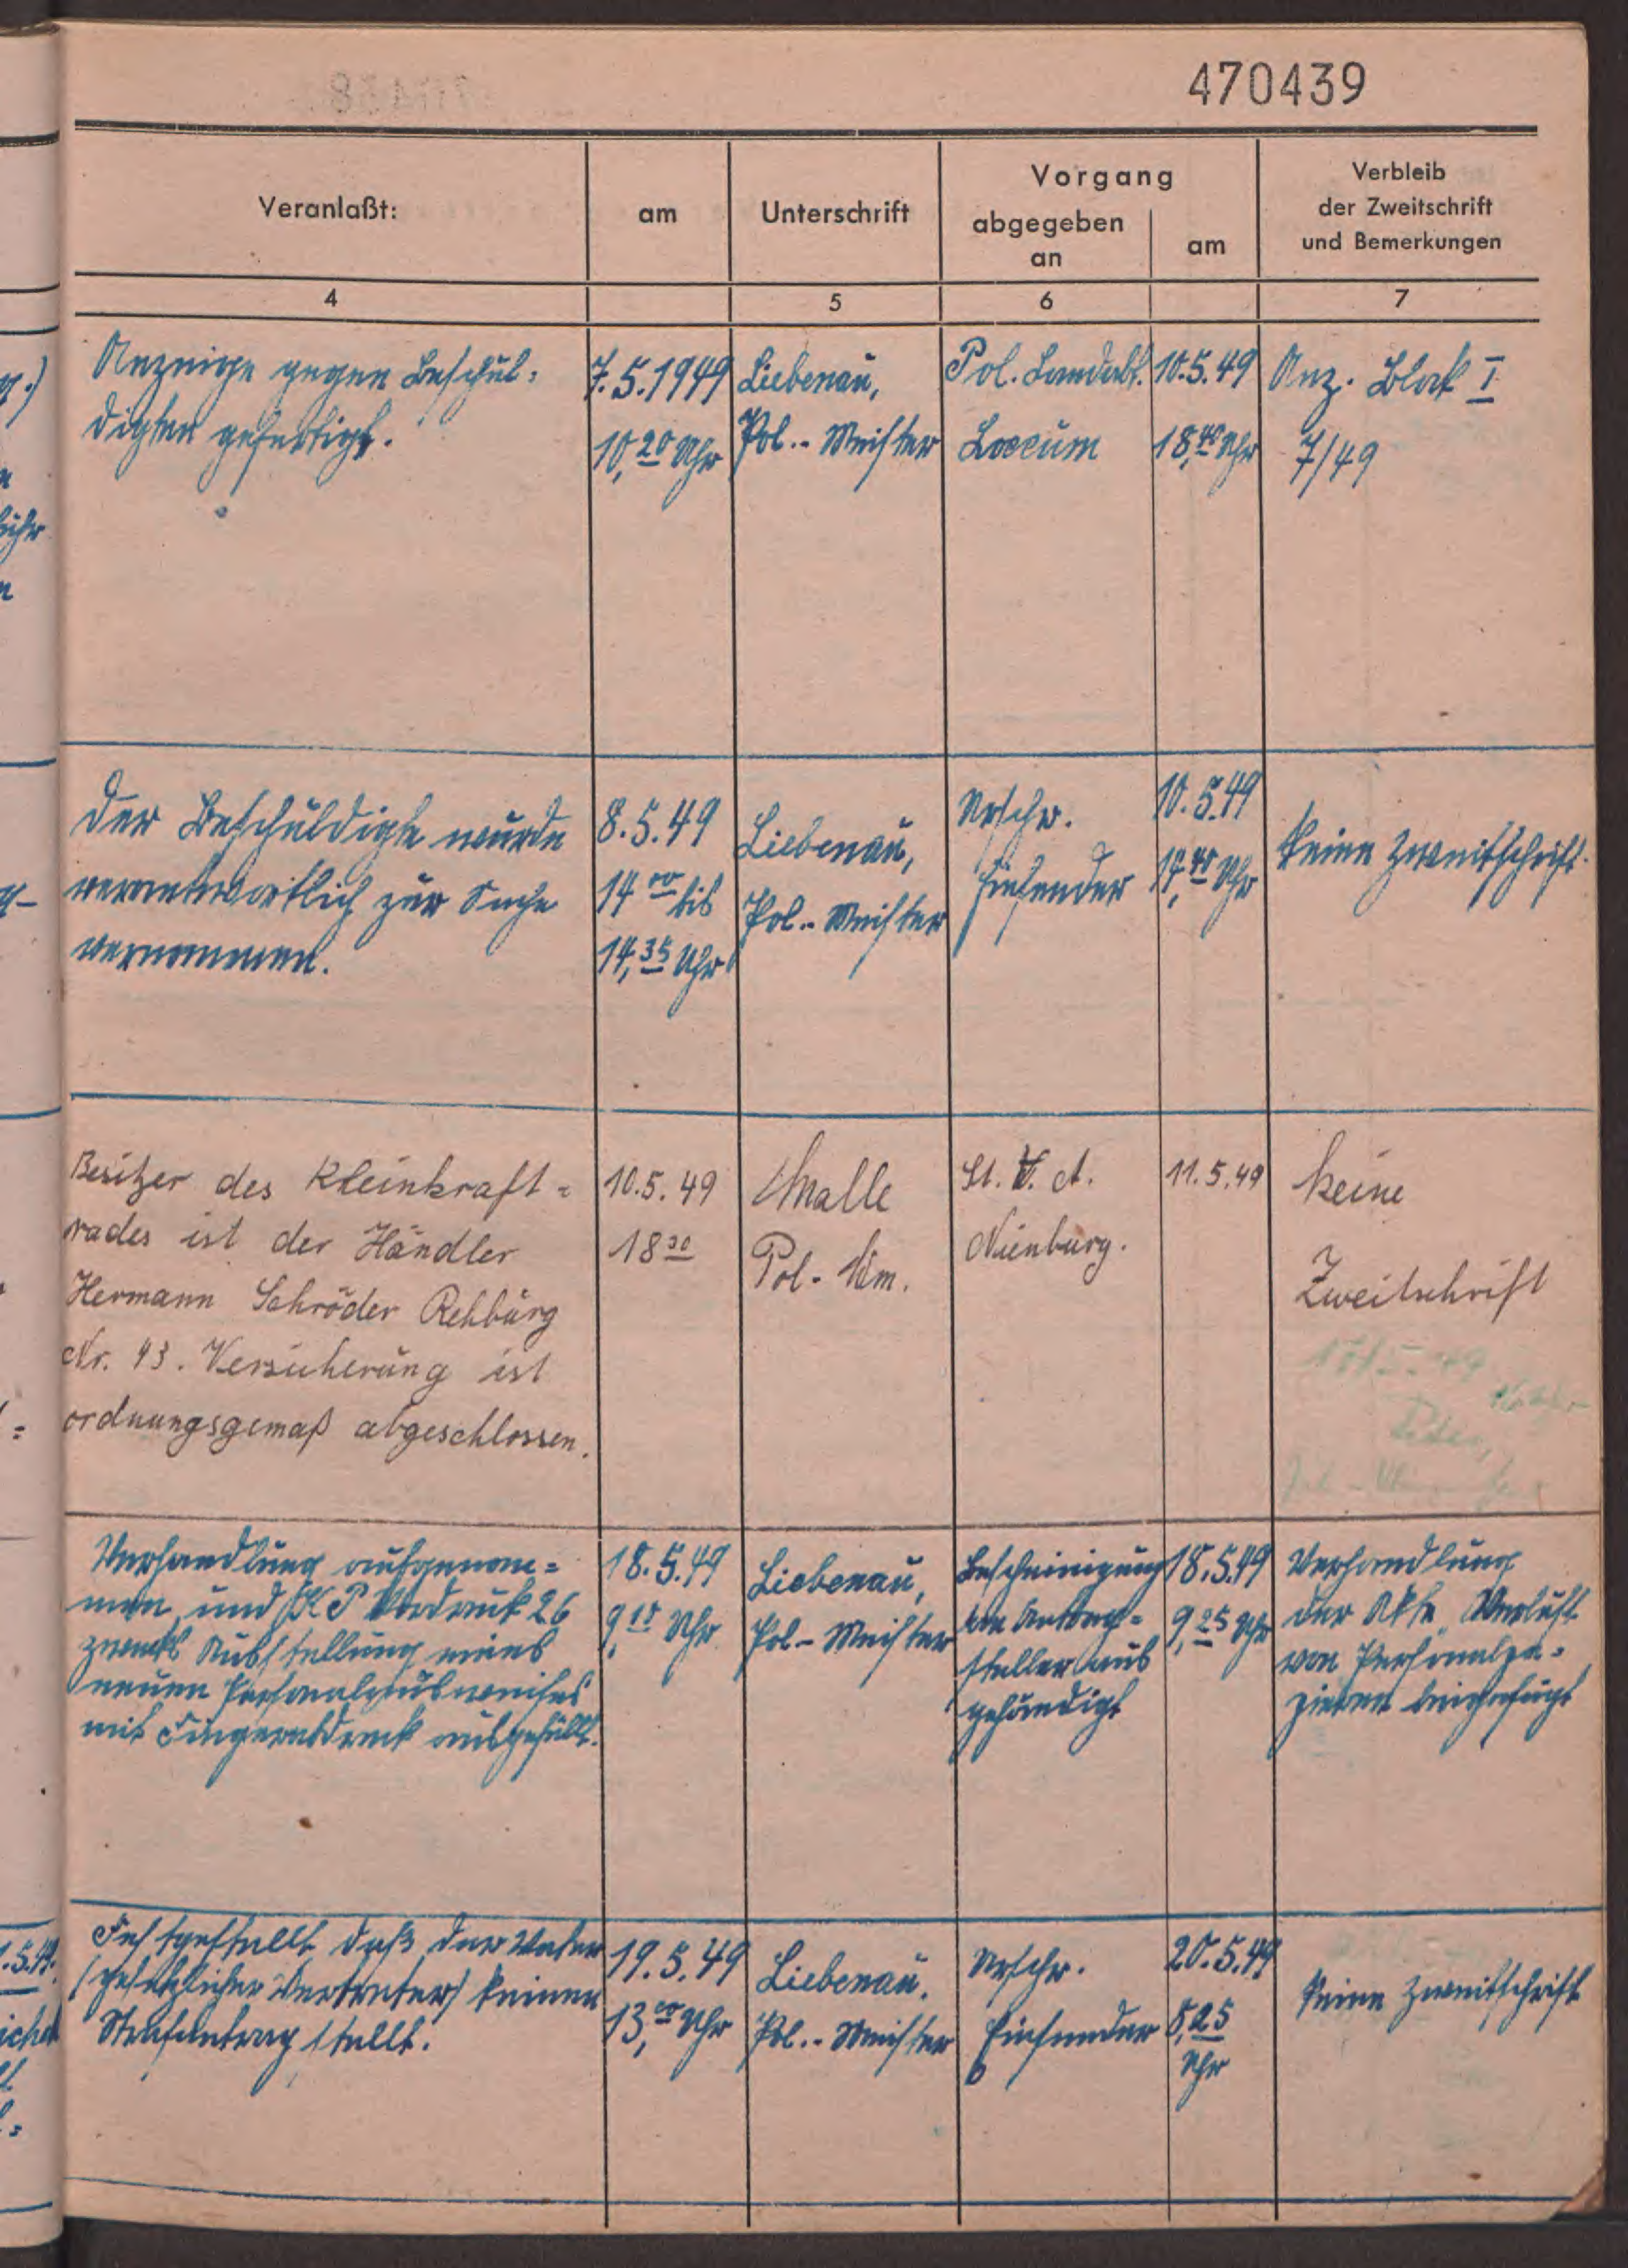 470439
Veranlaßt:
am
Unterschrift
Vorgang
abgegeben
an
am
Verbleib
der Zweitschrift
und Bemerkungen
4
5
6
7
Anzeige gegen Beschul-
digten gefertigt.
7.5.1949
10,20 Uhr
Liebenau,
Pol.-Meister
Pol. Landabt.
Loccum
10.5.49
18,40 Uhr
Anz. Block I
7/49
Der Beschuldigte wurde
verantwortlich zur Sache
vernommen.
8.5.49
14 00 bis
14,35 Uhr
Liebenau,
Pol.-Meister
Urschr.
Einsender
10.5.49
Uhr
keine Zweitschrift.
Besitzer des Kleinkraft=
rades ist der Händler
Hermann Schröder Rehburg
Nr. 43. Versicherung ist
ordnungsgemaß abgeschlossen.
10.5.49
18 30
Pol.
St. V. A.
Nienburg.
11.5.49
keine
Zweitschrift
Verhandlung aufgenom=
men und Vordruck 26
zwecks Ausstellung eines
neuen Personalausweises
mit Fingerabdruck ausgefüllt.
18.5.49
9,15 Uhr
Liebenau,
Pol-Meister
Bescheinigung
Antrag=
steller aus
gehändigt
18.5.49
9,25 Uhr
Verhandlung
der Akte Verlust
von Personalpa=
pieren beigefügt
Festgestellt, daß der Vater
(gesetzlicher Vertreter) keinen
Strafantrag stellt.
19.5.49
13,00 Uhr
Liebenau.
Pol.-Meister
Urschr.
Einsender
20.5.49
8,25
Uhr
keine Zweitschrift